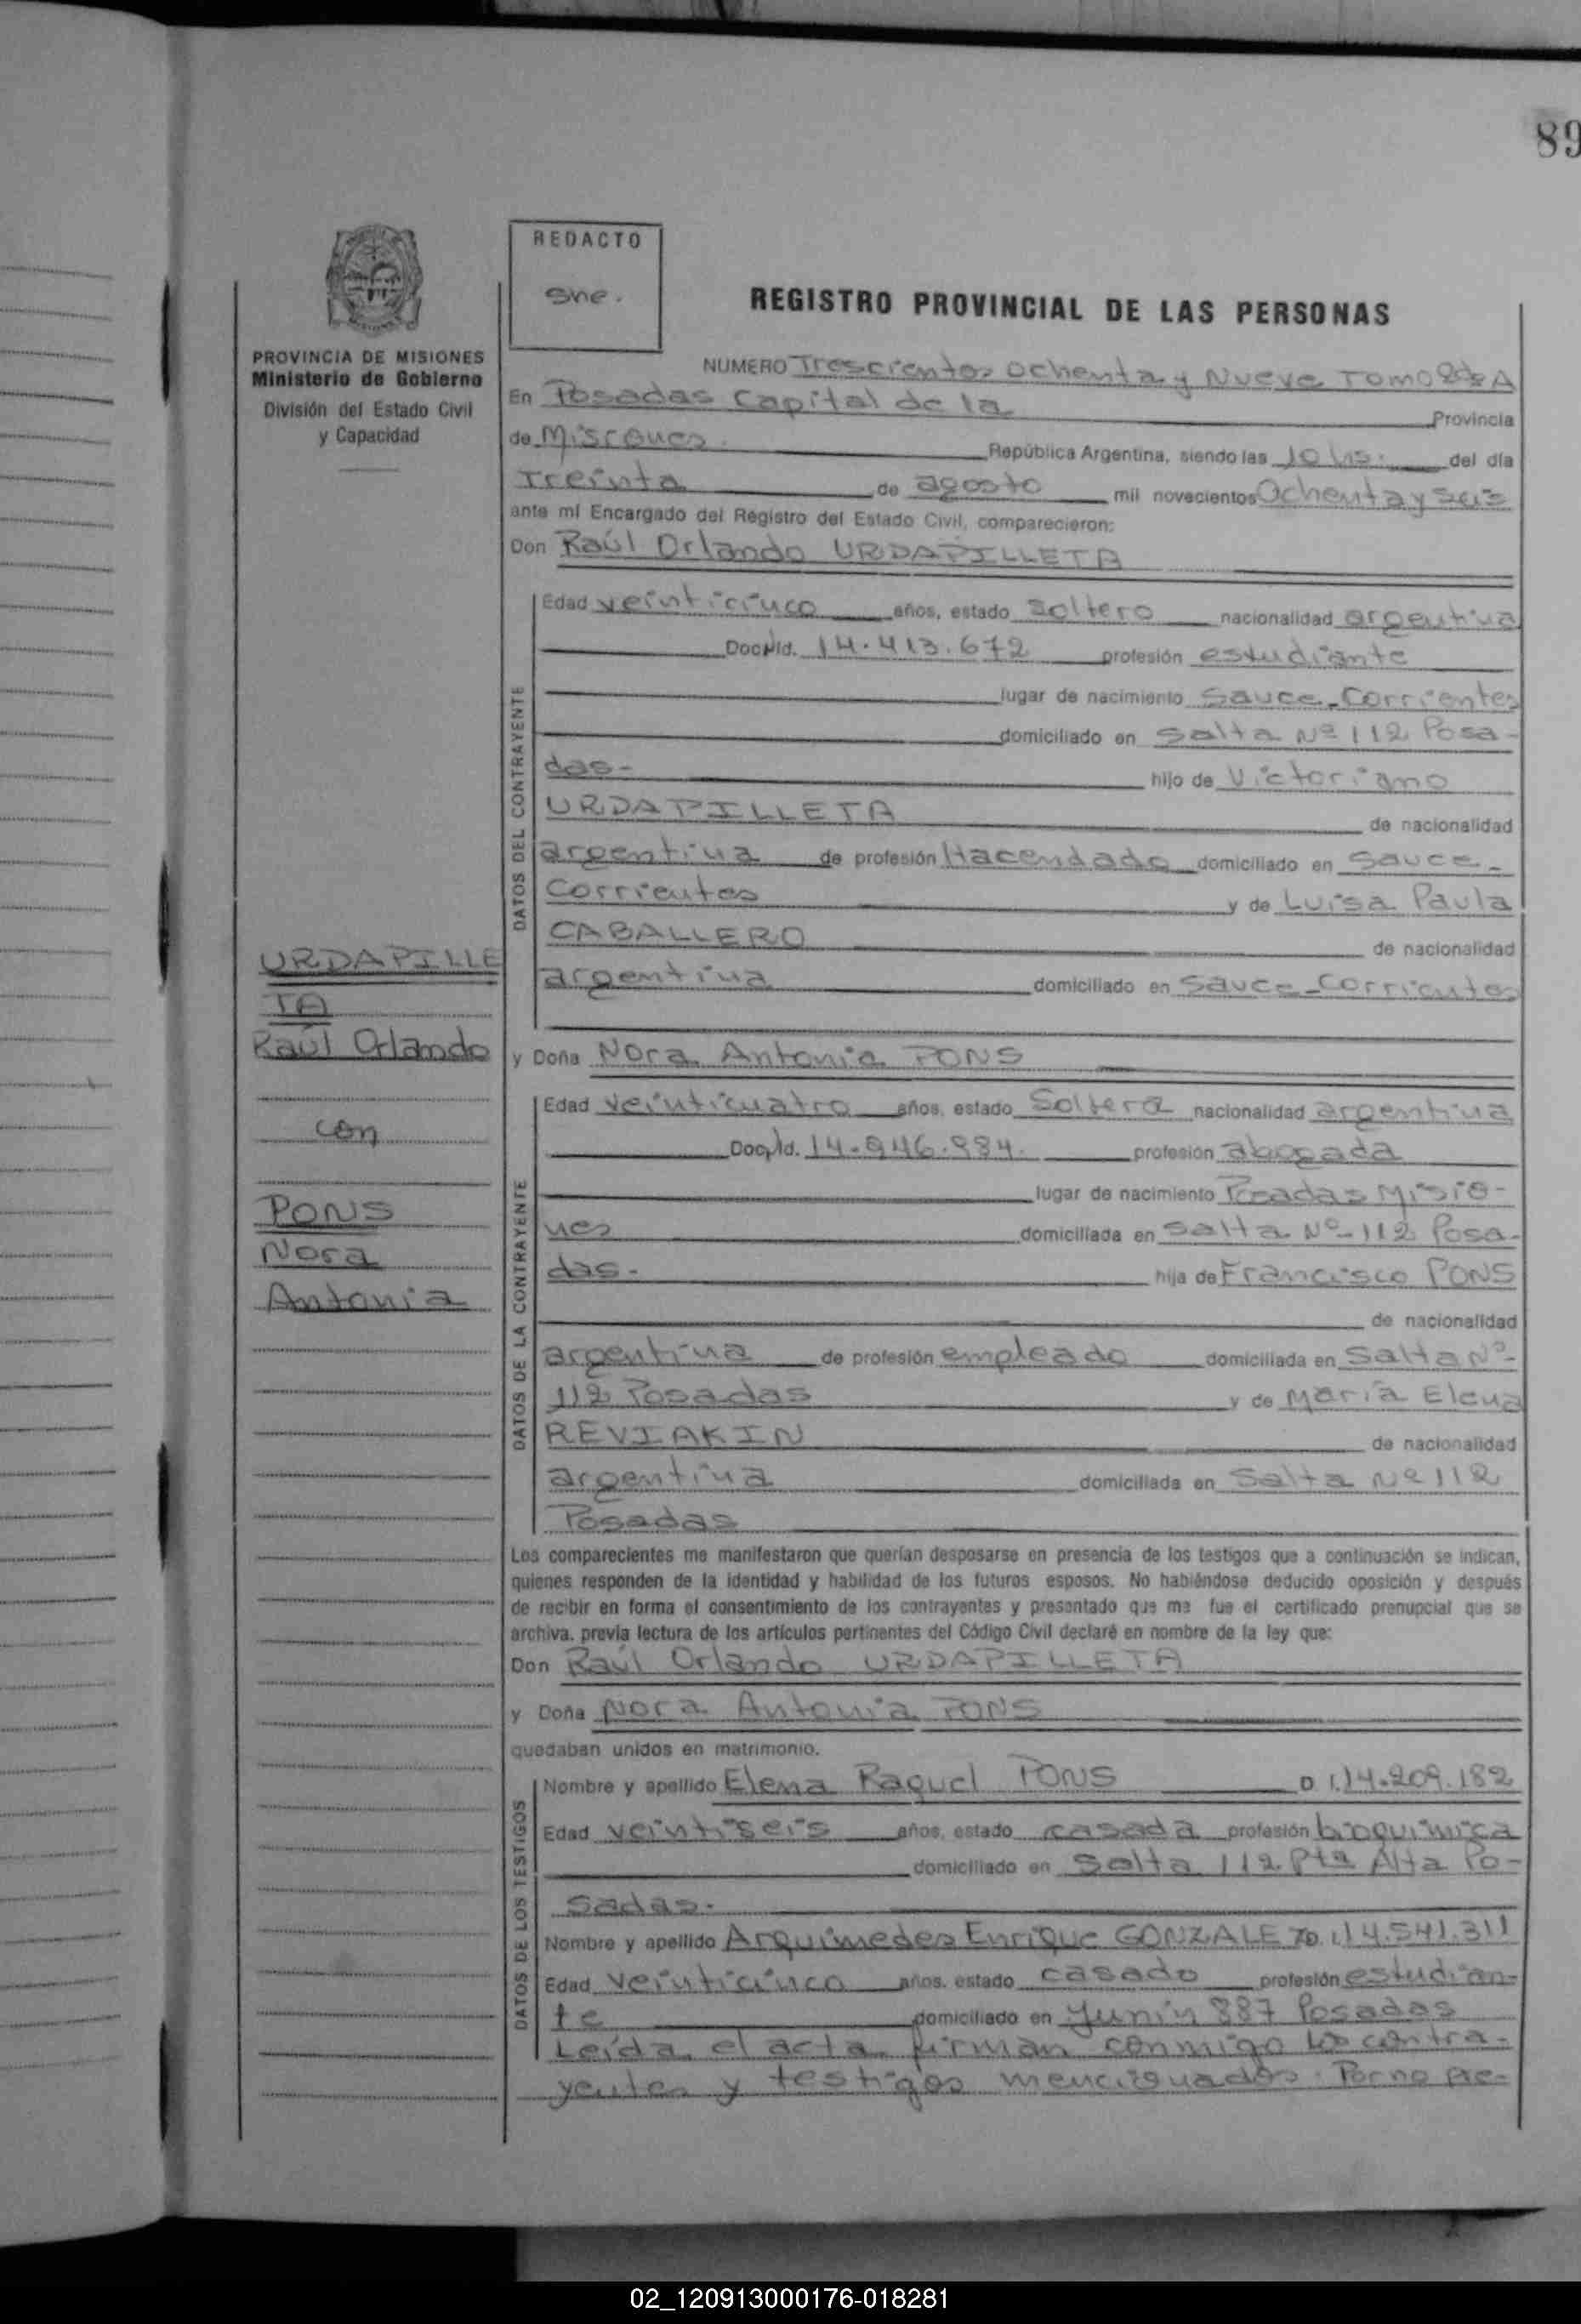 89
REDACTO
sne.
REGISTRO PROVINCIAL DE LAS PERSONAS
PROVINCIA DE MISIONES
Ministerio de Gobierno
División del Estado Civil
y Capacidad
NUMERO Trescientos Ochenta y Nueve Tomo
En Posadas Capital de la Provincia
de Misiones. República Argentina, siendo las 10 hs. del día
Treinta de agosto mil novecientos Ochenta y seis
ante mí Encargado del Registro del Estado Civil, comparecieron:
Don Raúl Orlando URDAPILLETA
URDAPILLE
TA
Raúl Orlando
con
PONS
Nora
Antonia
DATOS DEL CONTRAYENTE
Edad veinticinco años, estado soltero nacionalidad argentina
Doc. Id. 14.413.672 profesión estudiante
lugar de nacimiento Sauce-Corrientes
domiciliado en Salta Nº 112 Posa-
das- hijo de Victoriano
URDAPILLETA de nacionalidad
argentina de profesión Hacendado domiciliado en Sauce-
Corrientes y de Luisa Paula
CABALLERO de nacionalidad
argentina domiciliado en Sauce-Corrientes
y Doña Nora Antonia PONS
DATOS DE LA CONTRAYENTE
Edad veinticuatro años, estado Soltera nacionalidad argentina
Doc. Id. 14.946.984. profesión abogada
lugar de nacimiento Posadas Misio-
nes domiciliada en Salta Nº 112 Posa-
das- hija de Francisco PONS
de nacionalidad
argentina de profesión empleado domiciliada en Salta Nº
112 Posadas y de María Elena
REVIAKIN de nacionalidad
argentina domiciliada en Salta Nº 112
Posadas
Los comparecientes me manifestaron que querían desposarse en presencia de los testigos que a continuación se indican,
quienes responden de la identidad y habilidad de los futuros esposos. No habiéndose deducido oposición y después
de recibir en forma el consentimiento de los contrayentes y presentado que me fue el certificado prenupcial que se
archiva, previa lectura de los artículos pertinentes del Código Civil declaré en nombre de la ley que:
Don Raúl Orlando URDAPILLETA
y Doña Nora Antonia PONS
quedaban unidos en matrimonio.
DATOS DE LOS TESTIGOS
Nombre y apellido Elena Raquel PONS D.I. 14.209.182
Edad veintiseis años, estado casada profesión bioquímica
domiciliado en Salta 112 Pta Alta Po-
sadas.
Nombre y apellido Arquimedes Enrique GONZALEZ D.I. 14.541.311
Edad veinticinco años, estado casado profesión estudian-
te domiciliado en Junín 887 Posadas
Leída el acta firman conmigo los contra-
yentes y testigos mencionados. Por no pre-
02_120913000176-018281